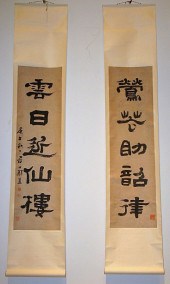 鶯花助韶律
雲日近仙樓